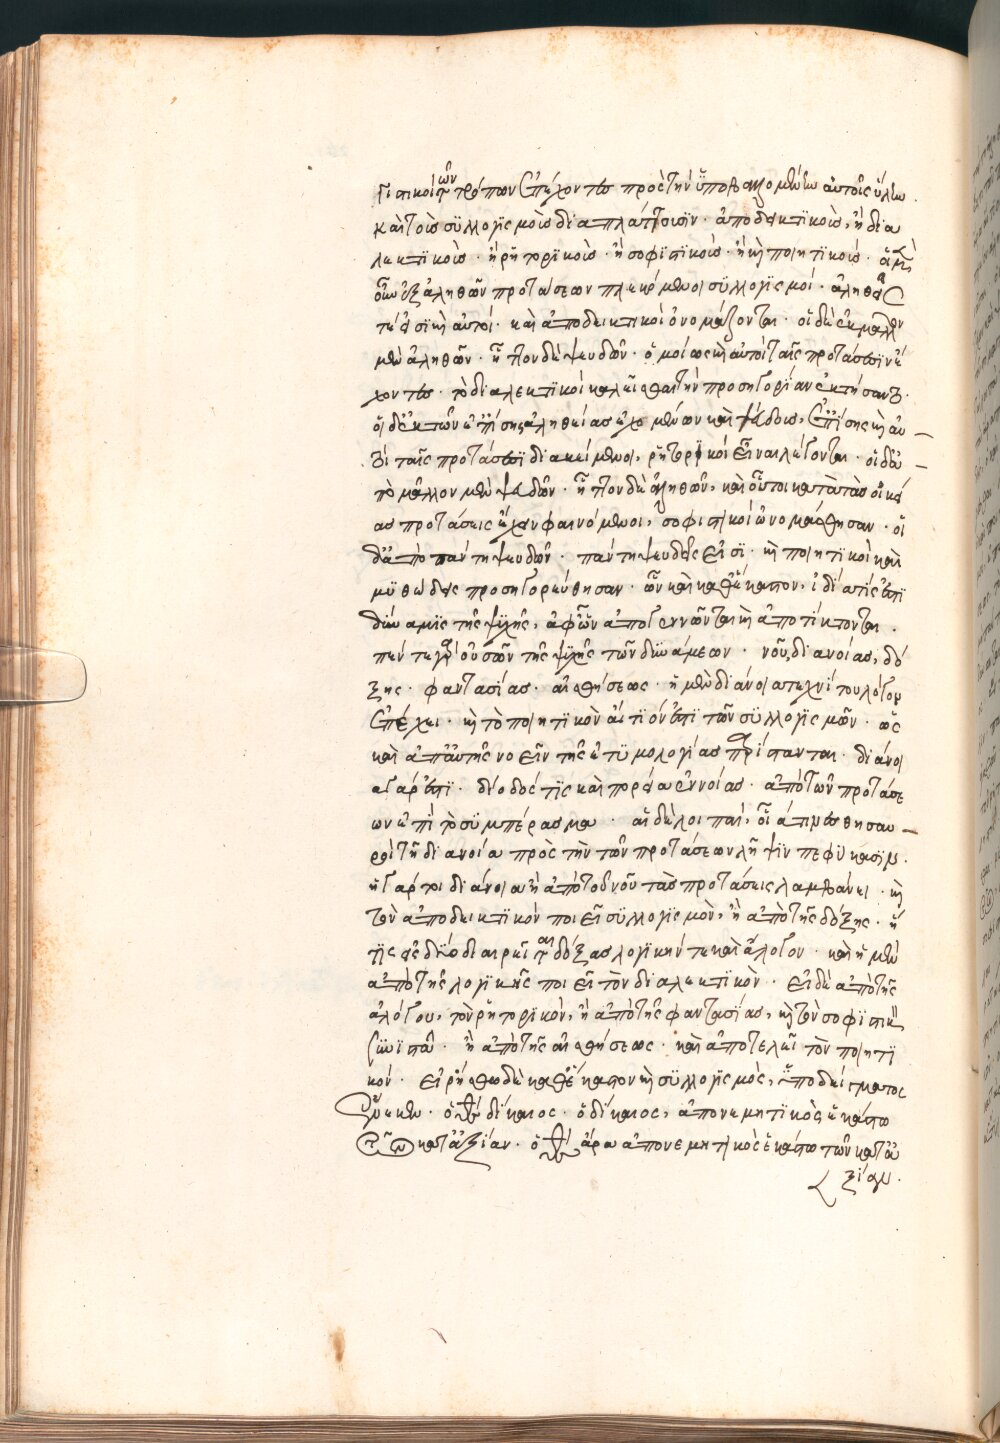 τιπικοὶ τὸν τρόπον ἐπέχοντες πρὸς τὴν ὑποβαλλομένην αὐτοῖς ὕλην
καὶ τοῖς συλλογισμοῖς διαπλάττουσιν · ἀποδεικτικοῖς, ἢ δια
λεκτικοῖς · ἢ ῥητορικοῖς · ἢ σοφιστικοῖς · ἢ καὶ ποιητικοῖς ·
οὖν ἐξ ἀληθῶν προτάσεων πλεκόμενοι συλλογισμοί · ἀληθεῖς
τέ εἰσι καὶ αὐτοί · καὶ ἀποδεικτικοὶ ὀνομάζονται · οἱ δὲ ἐκ μᾶλλον
μὲν ἀληθῶν · ἧττον δὲ ψευδῶν · ὁμοίως καὶ αὐτοὶ ταῖς προτάσεσιν ἔ
χοντες · τὸ διαλεκτικοὶ καλεῖσθαι τὴν προσηγορίαν ἐκτήσαντο ·
οἱ δὲ ἐκ τῶν ἐπίσης ἀληθείας ἐχομένων καὶ ψεύδους, ἐπίσης καὶ αὐ
τοὶ ταῖς προτάσεσι διακείμενοι, ῥητορικοὶ εἶναι λέγονται · οἱ δὲ
τὸ μᾶλλον μὲν ψευδῶν · ἧττον δὲ ἀληθῶν, καὶ οὗτοι κατὰ τὰς οἰκεί
ας προτάσεις ἔχειν φαινόμενοι, σοφιστικοὶ ὠνομάσθησαν · οἱ
δὲ ἀπὸ πάντη ψευδῶν · πάντη ψευδεῖς εἰσι · καὶ ποιητικοὶ καὶ
μυθώδεις προσηγορεύθησαν · ὧν καὶ καθ' ἕκαστον, ἰδία τίς ἐστι
δύναμις τῆς ψυχῆς, ἀφ' ὧν ἀπογεννῶνται καὶ ἀποτίκτονται ·
πέντε γὰρ οὐσῶν τῆς ψυχῆς τῶν δυνάμεων · νοῦ, διανοίας, δό
ξης · φαντασίας · αἰσθήσεως · ἡ μὲν διάνοια τεχνίτου λόγον
ἐπέχει · καὶ τὸ ποιητικὸν αἴτιόν ἐστι τῶν συλλογισμῶν · ὡς
καὶ ἀπ' αὐτῆς νοεῖν τῆς ἐτυμολογίας παρίσταται · διάνοι
α γάρ ἐστι · δίοδός τις καὶ πορεία ἐννοίας · ἀπὸ τῶν προτάσε
ων ἐπὶ τὸ συμπέρασμα · αἱ δὲ λοιπαί,
τῇ διανοία πρὸς τὴν τῶν προτάσεων λῆψιν πεφύκασιν ·
ἢ γάρ τοι διάνοια ἢ ἀπὸ τοῦ νοῦ τὰς προτάσεις λαμβάνει · καὶ
τὸν ἀποδεικτικὸν ποιεῖ συλλογισμὸν, ἢ ἀπὸ τῆς δόξης ·
τὴν δόξαν λογικήν τε καὶ ἄλογον · καὶ ἢ μὲν
ἀπὸ τῆς λογικῆς ποιεῖ τὸν διαλεκτικὸν · εἰ δὲ ἀπὸ τῆς
ἀλόγου, τὸν ῥητορικόν, ἢ ἀπὸ τῆς φαντασίας, καὶ τὸν σοφιστικὸν
συνιστᾷ · ἢ ἀπὸ τῆς αἰσθήσεως · καὶ ἀποτελεῖ τὸν ποιητι
κόν · εἰρήσθω δὲ καθ' ἕκαστον καὶ συλλογισμὸς, ὑποδείγματος
ἕνεκεν · ὁ θεὸς δίκαιος · ὁ δίκαιος, ἀπονεμητικὸς ἑκάστω
τῶν κατ' ἀξίαν · ὁ θεὸς ἄρα ἀπονεμητικὸς ἑκάστω τῶν κατ' ἀ
ξίαν ·